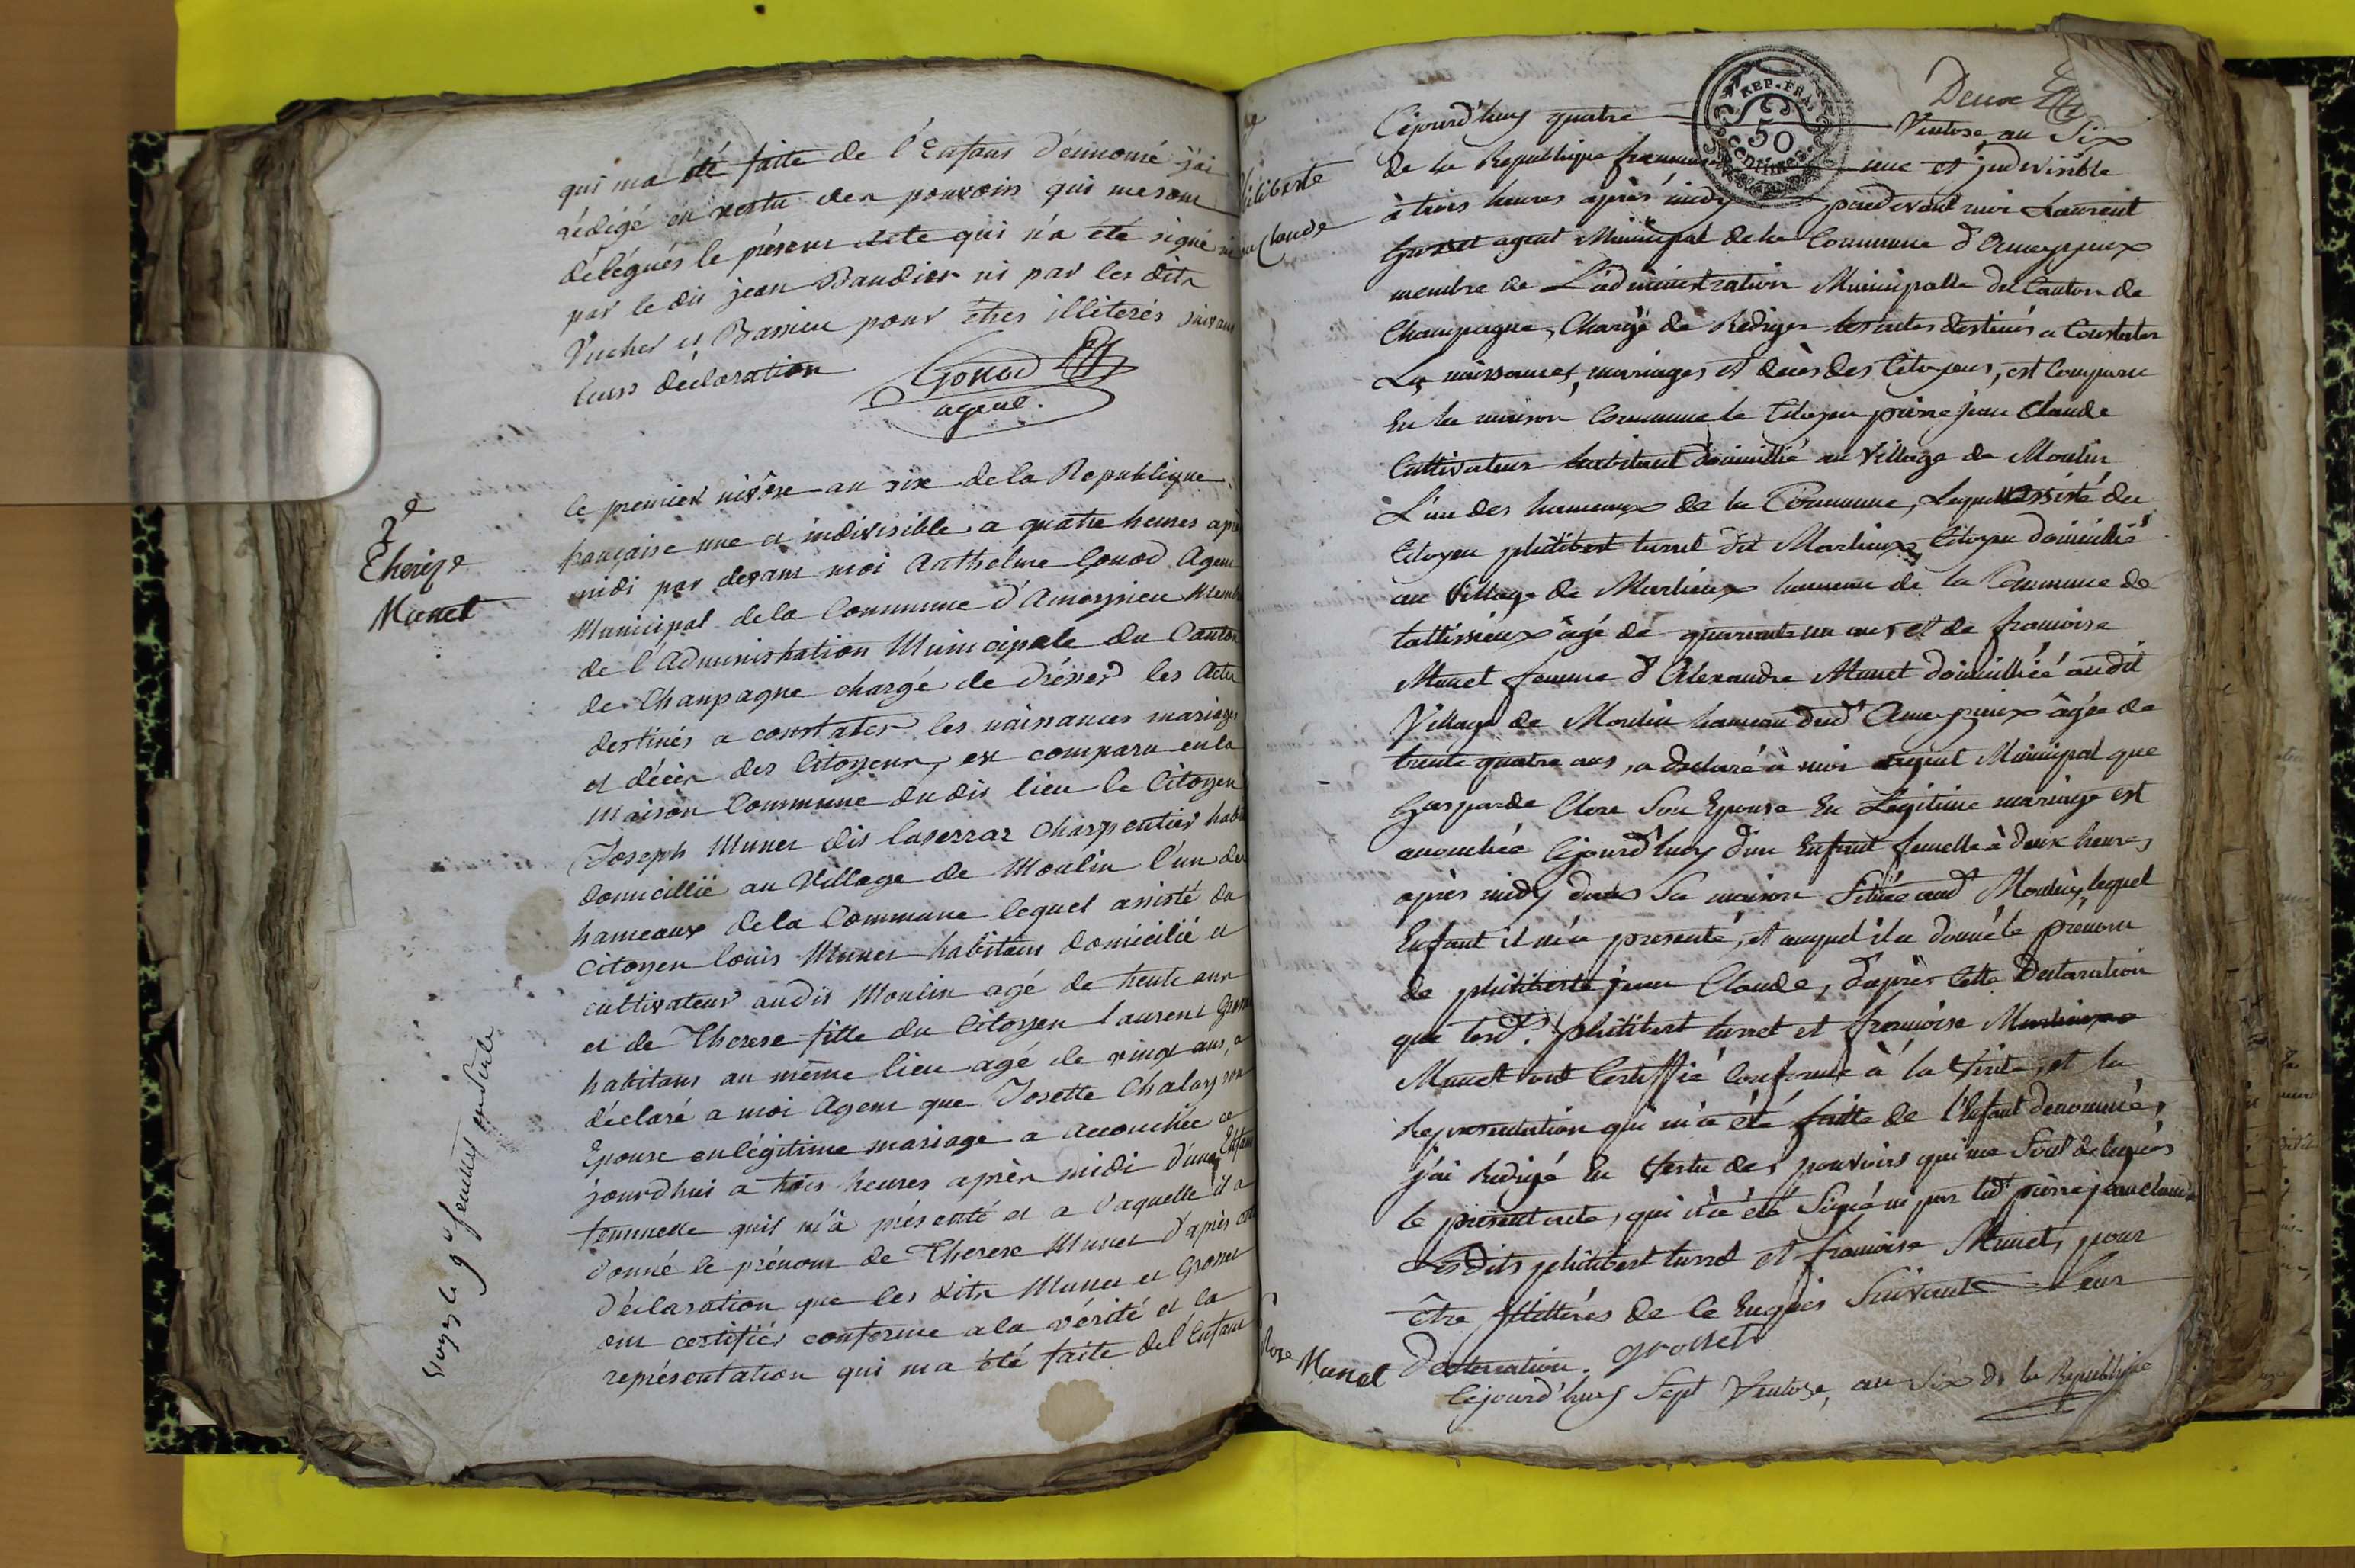 qui ma été faite de l'Enfans dénnomé j'ai
rédigé en vertu des pouvoirs qui me sont
délégués le présens Acte qui n'a été signé ni
par le dis jean Baudier ni par les dits
Vucher et Bassieu pour êtres illiterés suivans
leurs déclaration
Gonod
agent.
2e
Therèze
Munet
le premier nivôse an six de la Republique
française une et indivisible a quatre heures après
midi par devans moi Anthelme Gonod Agent
Municipal de la Commune d'Ameyzieu Membre
de l'Administration Municipale du Canton
de Champagne chargé de drésser les Actes
destinés a constater les naissances mariages
et décès des Citoyens, est comparu en la
Maison Commune du dis lieu le Citoyen
Joseph Munet dis laserraz Charpentier habi
domicillié au Village de Moulin l'un des
hameaux de la Commune lequel assisté du
Citoyen louis Munet habitans domicilié et
cultivateur audis Moulin agé de trente ans
et de Therese fille du Citoyen laurent Grosset
habitans au même lieu agé de vingt ans, a
déclaré a moi Agent que Josette Chalay son
Epouse en légitime mariage a accouchée ce
jourdhui a trois heures après midi d'une Enfant
femmelle quil m'à présenté et a laquelle il a
donné le prénom de Therese Munet d'après cette
déclaration que les dits Munet et Grosset
ont certifiés conforme a la vérité et la
représentation qui ma été faite del'Enfant
voyez le 9e feuillet
Deux
REP. FRA.
50
CENTIMES
philiberte
jean Claude
Cejourd'huy quatre Ventose an Six
de la Republique francaise une et indivisible
à trois heures après midy pardevant moi Laurent
Grosset agent Municipal de la Commune d'Ameyzieux
membre de L'administration Municipalle du Canton de
Champagne, Chargé de Rediger les actes destinés a Constater
Les naissances, mariages et décès des Citoyens, est Comparu
En la maison Commune le Citoyen pierre jean Claude
Cultivateur habitant domicillié au Village de Moulin
L'un des hameaux de la Commune, Lequel assisté du
Citoyen philibert turret dit Marlieux Citoyen domicillié
au Village de Marlieux hameau de la Commune de
tallissieux âgé de quarante un ans et de francoise
Munet femme d'Alexandre Munet domicilliée audit
Village de Moulin hameau dud.t Ameyzieux âgée de
trente quatre ans, a declaré à moi agent Municipal que
Gasparde Clere Son Epouse En Légitime mariage est
accouchée Cejourd'huy d'un Enfant femelle à deux heures
après midy dans Sa maison Située aud.t Moulin, lequel
Enfant il m'a presenté, et auquel il a donné le prénom
de philiberte jean Claude, d'après Cette Declaration
que lesd.ts philibert turret et francoise Marlieux
Munet ont Certiffié Conforme à la Verité, et la
Representation qui m'a été faitte de l'Enfant denommé,
j'ai Redigé En Vertu des pouvoirs qui me Sont delegués
le present acte, qui n'a été Signé ni par led.t pierre jean claude
Lesdits philibert turret et francoise Munet, pour
être illittérés de ce Enquis Suivant Leur
Declaration. grosset
Rose
Munet
Cejourd'huy Sept Ventose, an Six de la Republique